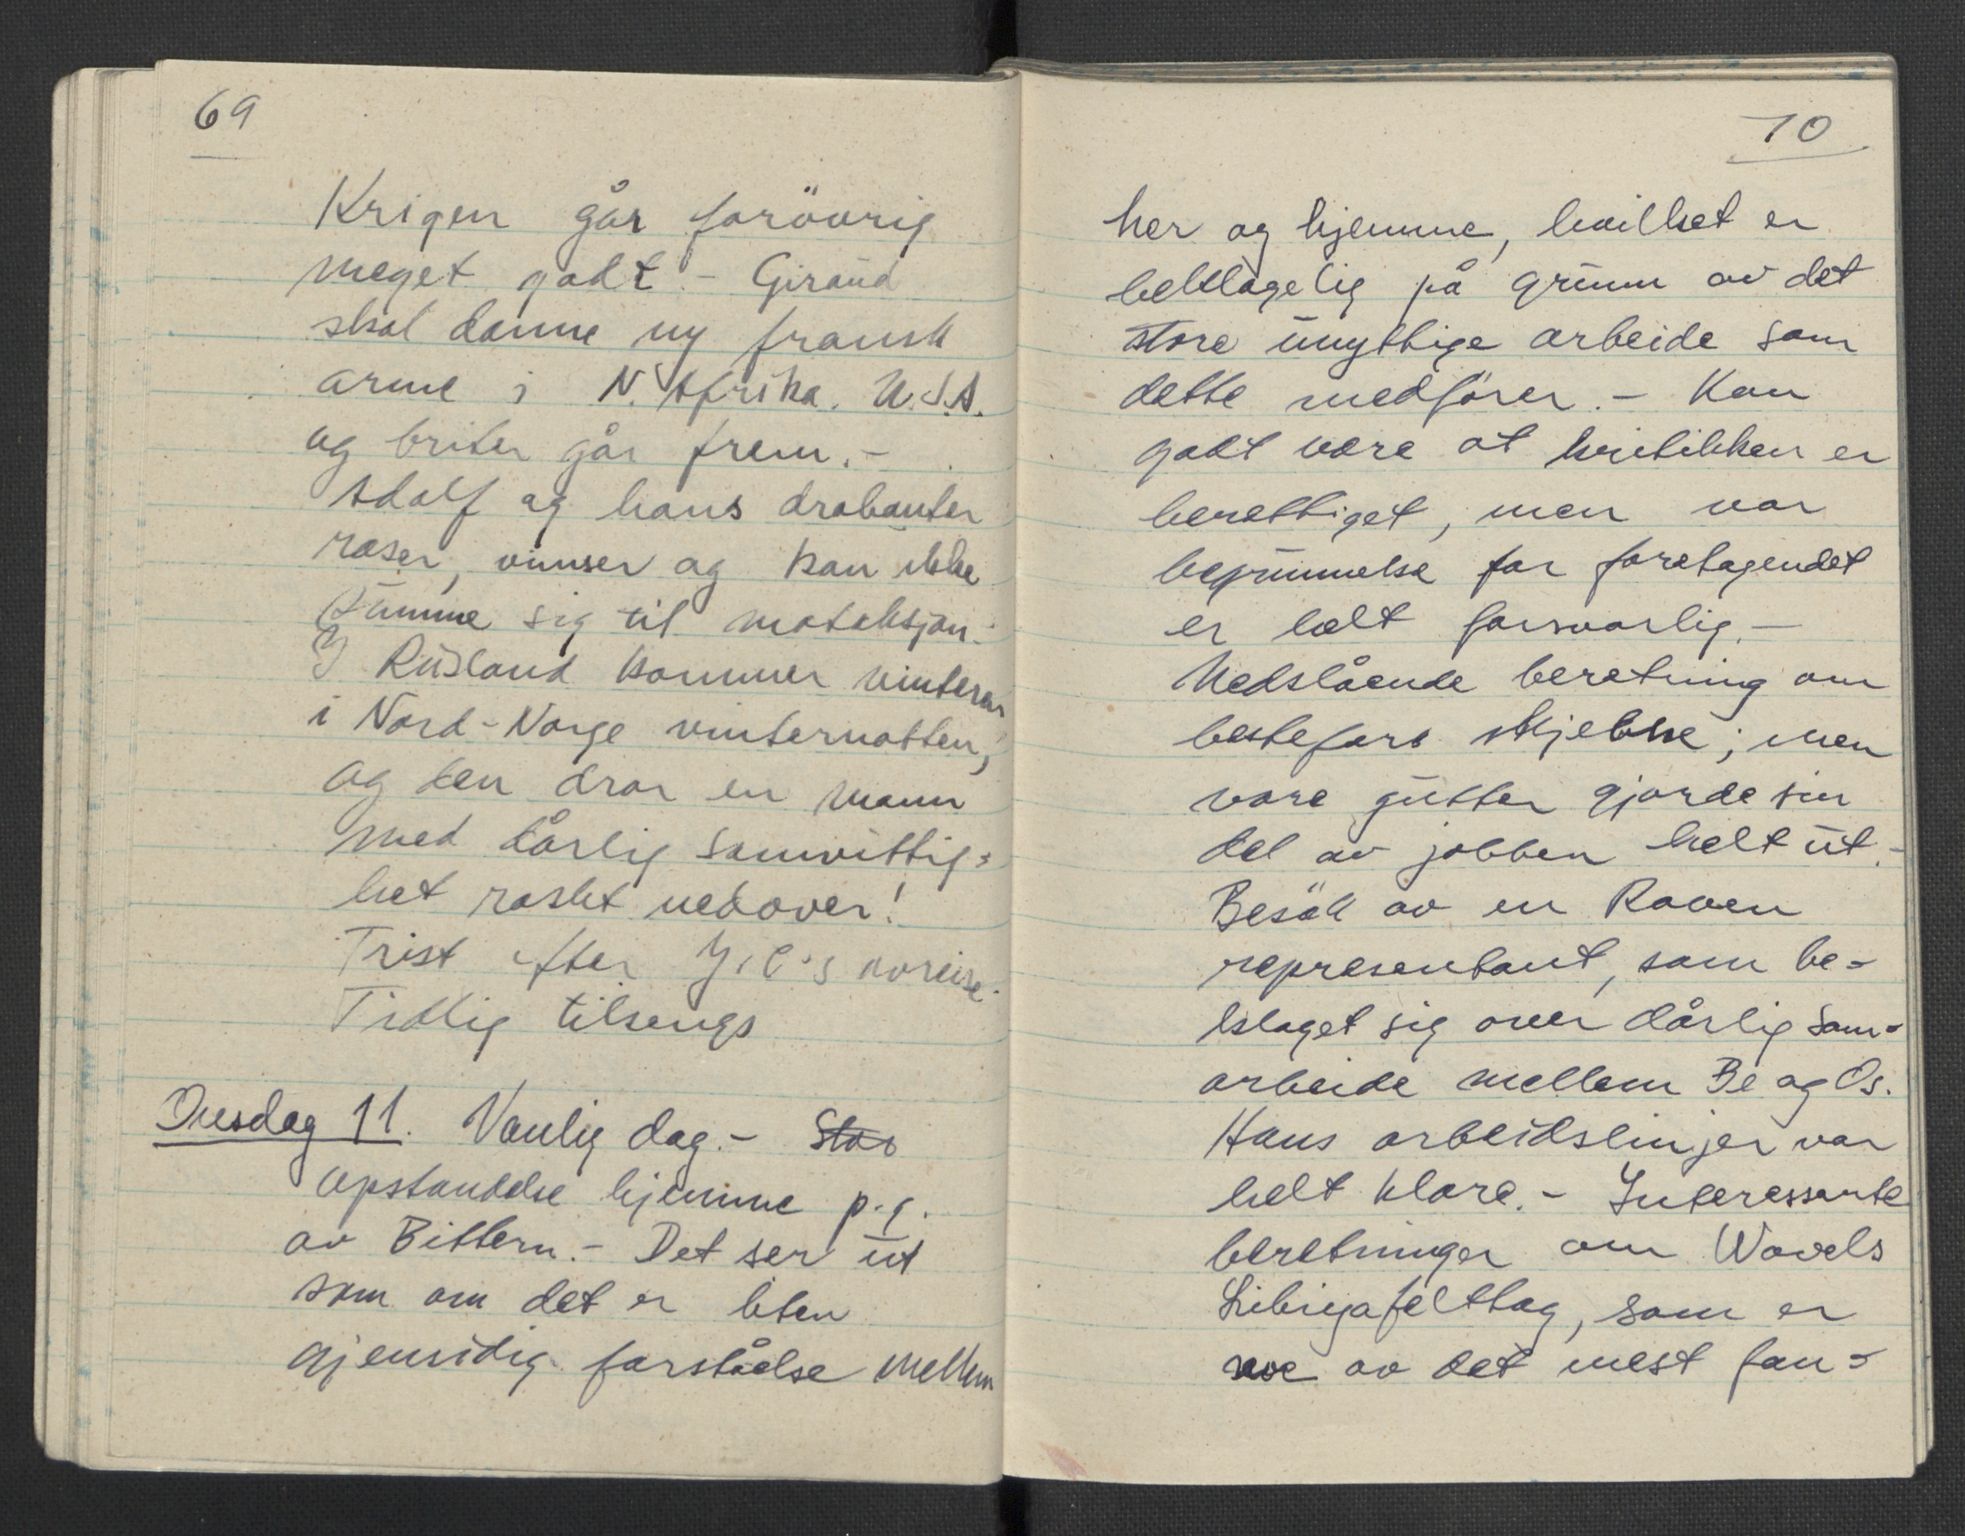 69
Krigen går forövrig
meget godt - Giraud
skal danne ny fransk
arme i N. Afrika. U.S.A.
og briter går frem. -
Adolf og hans drabanter
raser, vimser og kan ikke
samme sig til motaksjon.
I Rusland kommer vinteren
i Nord-Norge vinternatten,
og den drar en mann
med dårlig samvittig=
het raskt nedover!
Trist efter J.C's avreise.
Tidlig tilsengs
Onsdag 11. Vanlig dag. - Stor
opstandelse hjemme p.g.
av Bittern. - Det ser ut
som om det er liten
gjensidig forståelse mellem
70
her og hjemme, hvilket er
beklagelig på grunn av det
store unyttige arbeide som
dette medfører. - Kan
godt være at kritikken er
berettiget, men vor
begrunnelse for foretagendet
er helt forsvarlig. -
Nedslående beretning om
bestefars skjebne; men
vore gutter gjorde sin
del av jobben helt ut. -
Besök av en Raven
representant, som be=
klaget sig over dårlig sam=
arbeide mellem Be og Os.
Hans arbeidslinjer var
helt klare. - Interessante
beretninger om Wavels
Libiyafelttog, som er
noe av det mest fan=